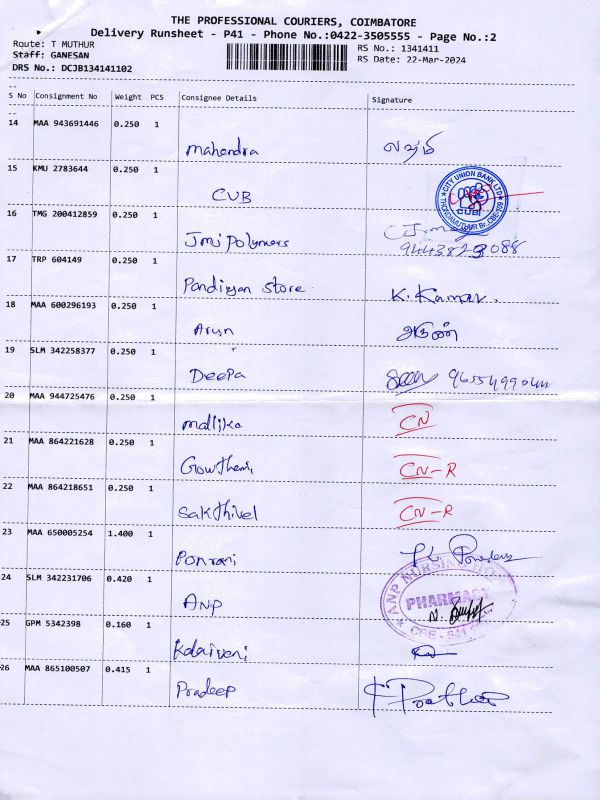 THE PROFESSIONAL COURIERS, COIMBATORE
Delivery Runsheet - P41 - Phone No.:0422-3505555 - Page No.:2
Route: T MUTHUR
Staff: GANESAN
RS No.: 1341411
RS Date: 22-Mar-2024
DRS No.: DCJB134141102
S No Consignment No Weight PCS Consignee Details Signature
14 MAA 943691446 0.250 1
Mahendra
15 KMU 2783644 0.250 1
CUB
CITY UNION BANK LTD
CUB
16 TMG 200412859 0.250 1
Jmi Polymers
17 TRP 604149 0.250 1
Pandiyan Store K. Kumar.
18 MAA 600296193 0.250 1
Arun அருண்
19 SLM 342258377 0.250 1
Deepa
20 MAA 944725476 0.250 1
Mallika CN
21 MAA 864221628 0.250 1
Gowthami CN-R
22 MAA 864218651 0.250 1
Sakthivel CN-R
23 MAA 650005254 1.400 1
Ponrani
24 SLM 342231706 0.420 1
ANP
ANP NURSING
PHARMACY
25 GPM 5342398 0.160 1
Kalaivani
26 MAA 865100507 0.415 1
Pradeep